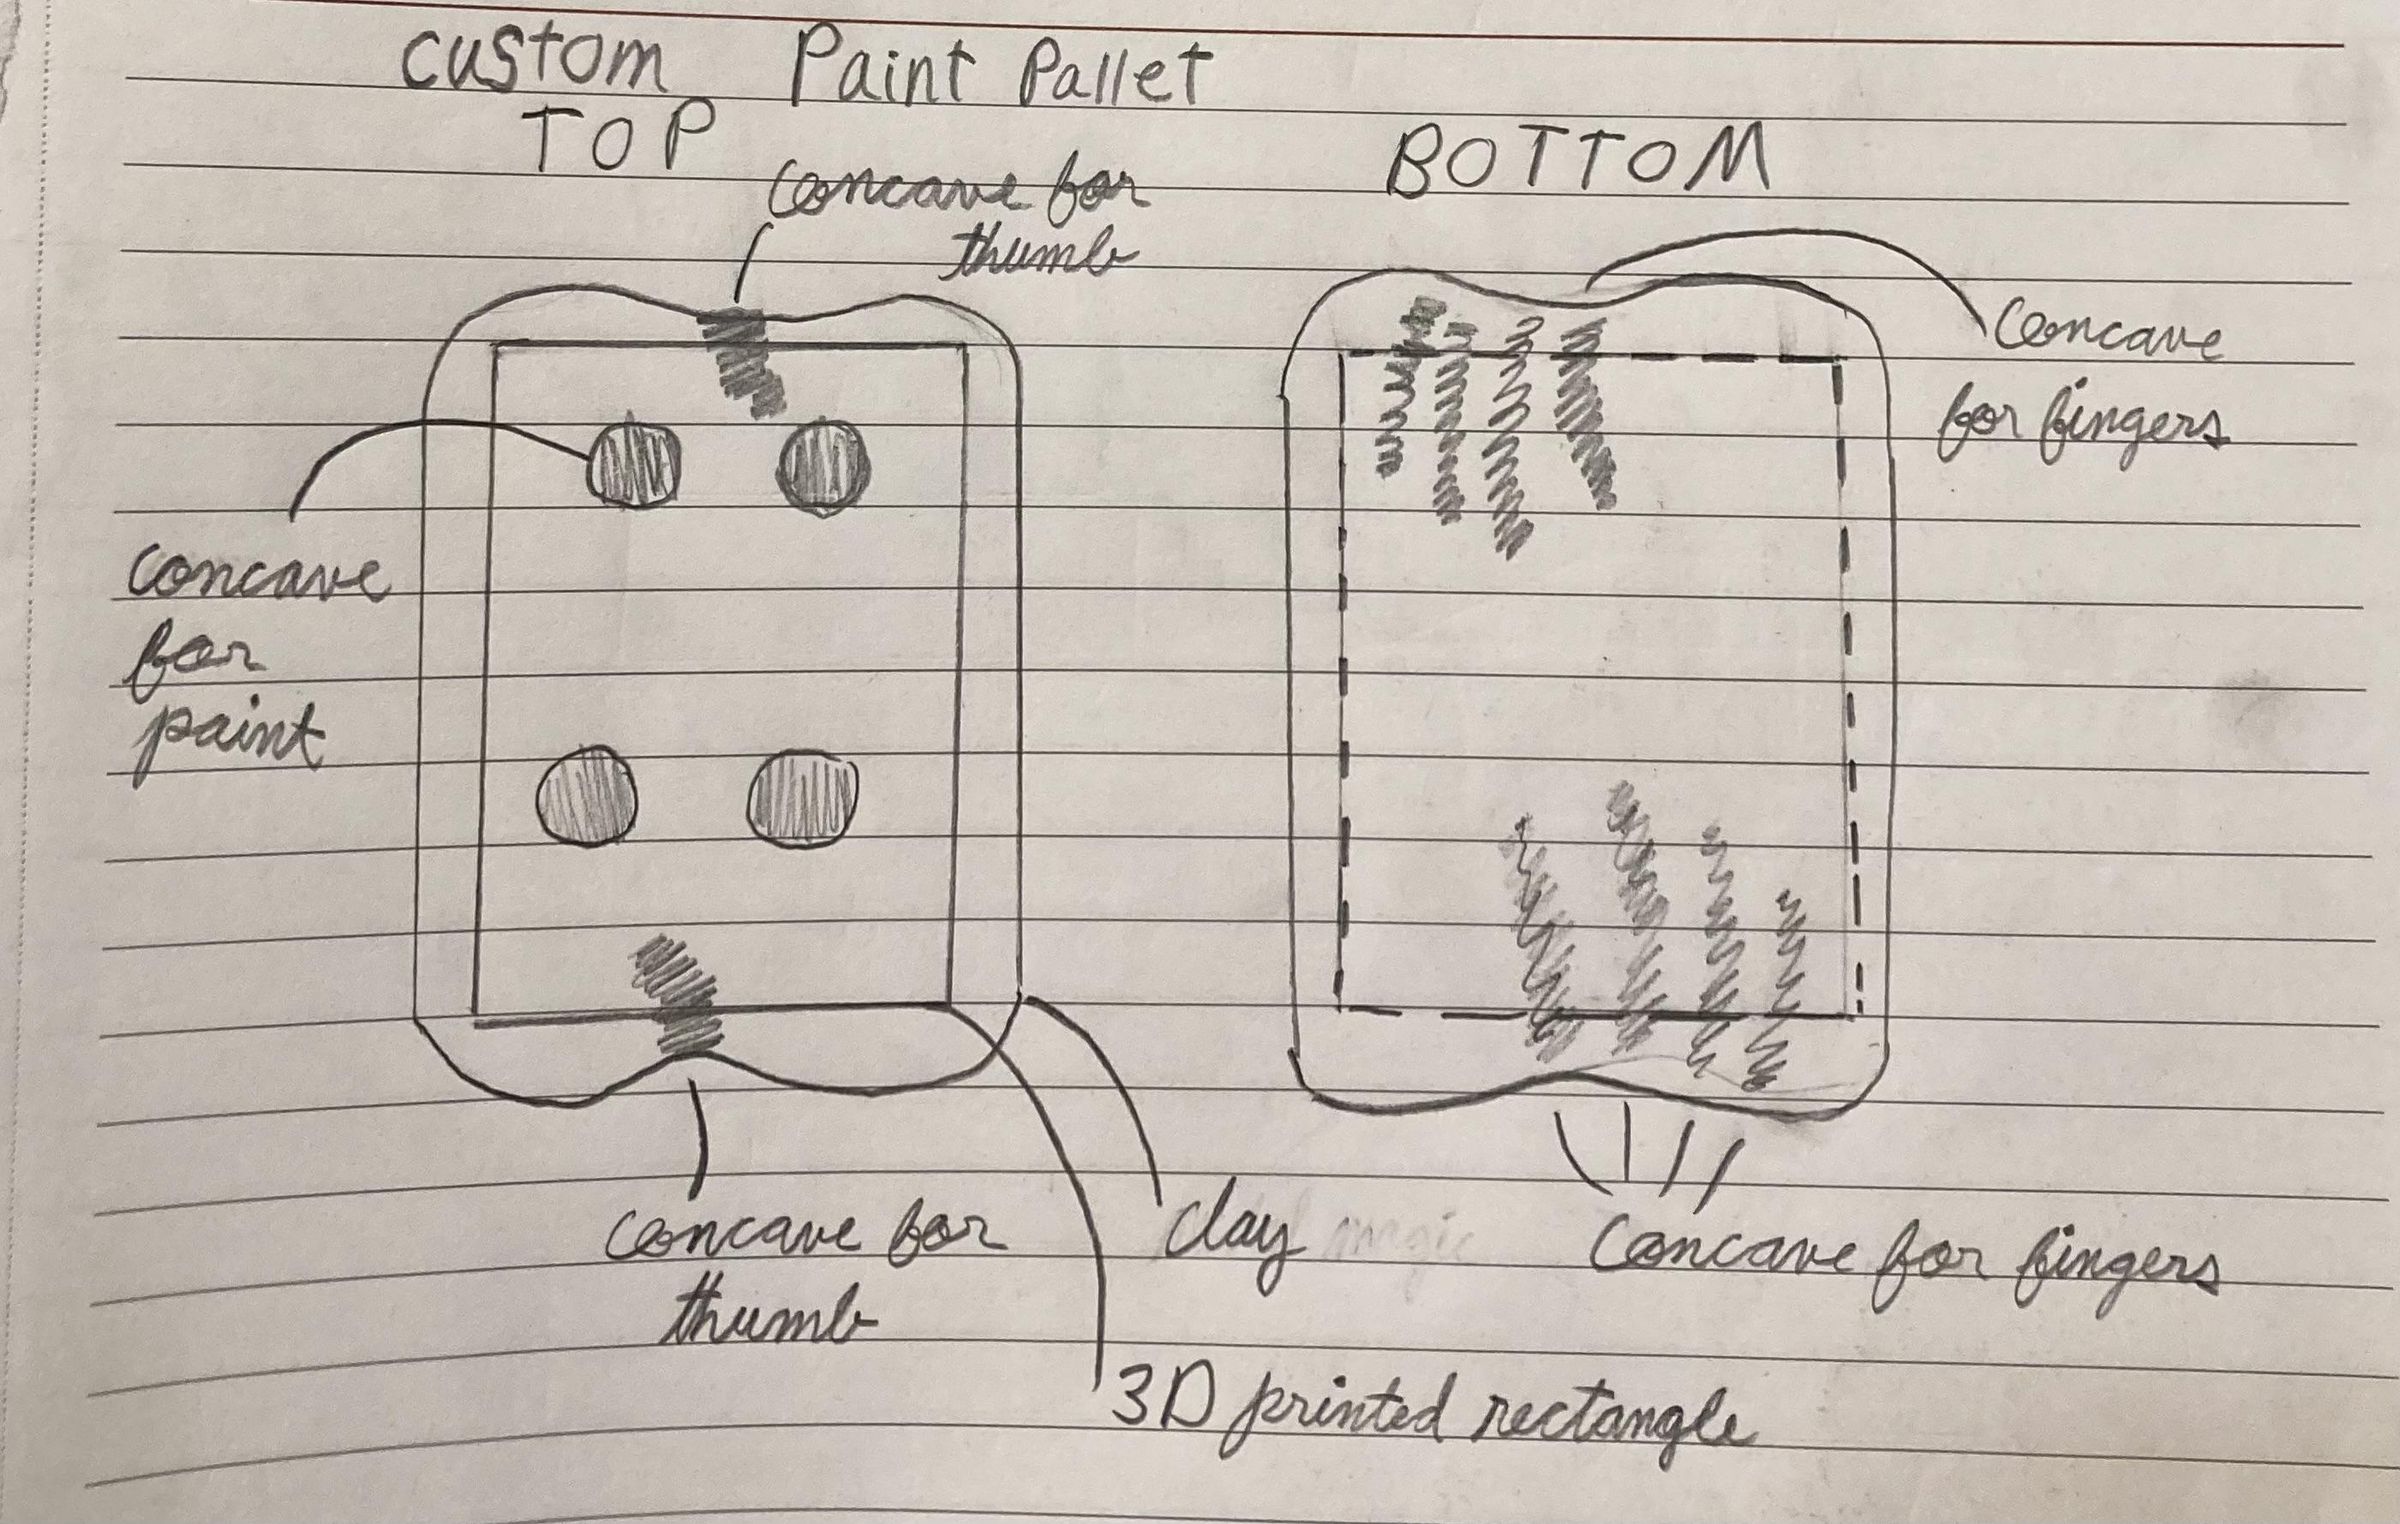 custom Paint Pallet
TOP
BOTTOM
concave for
thumb
concave
for fingers
concave
for
paint
concave for
thumb
clay
concave for fingers
3D printed rectangle